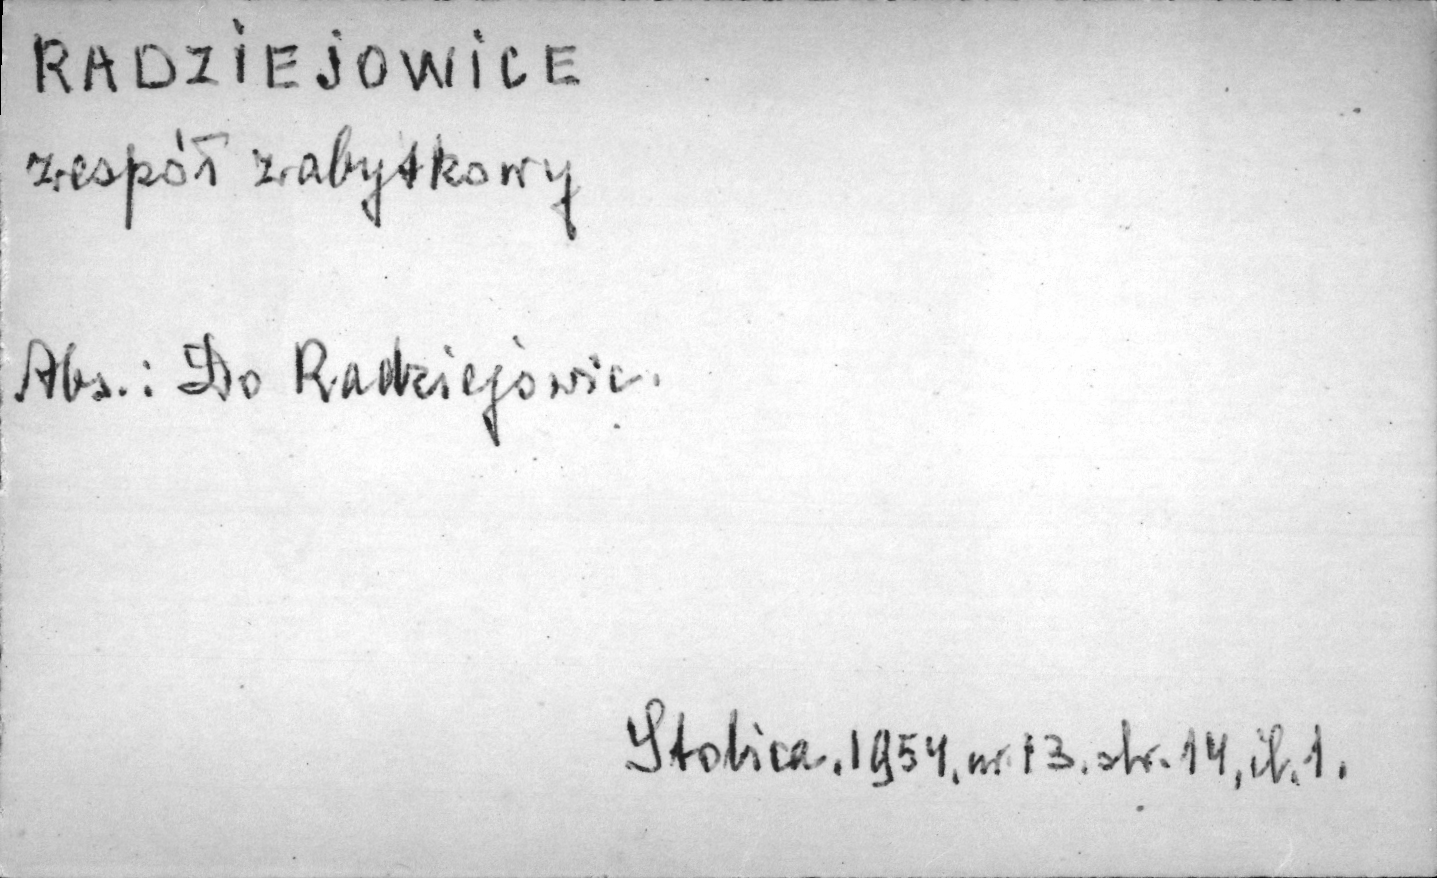 RADZIEJOWICE
zespół zabytkowy
Abs.: Do Radziejowic.
Stolica. 1954. nr 13. str. 14, il. 1.